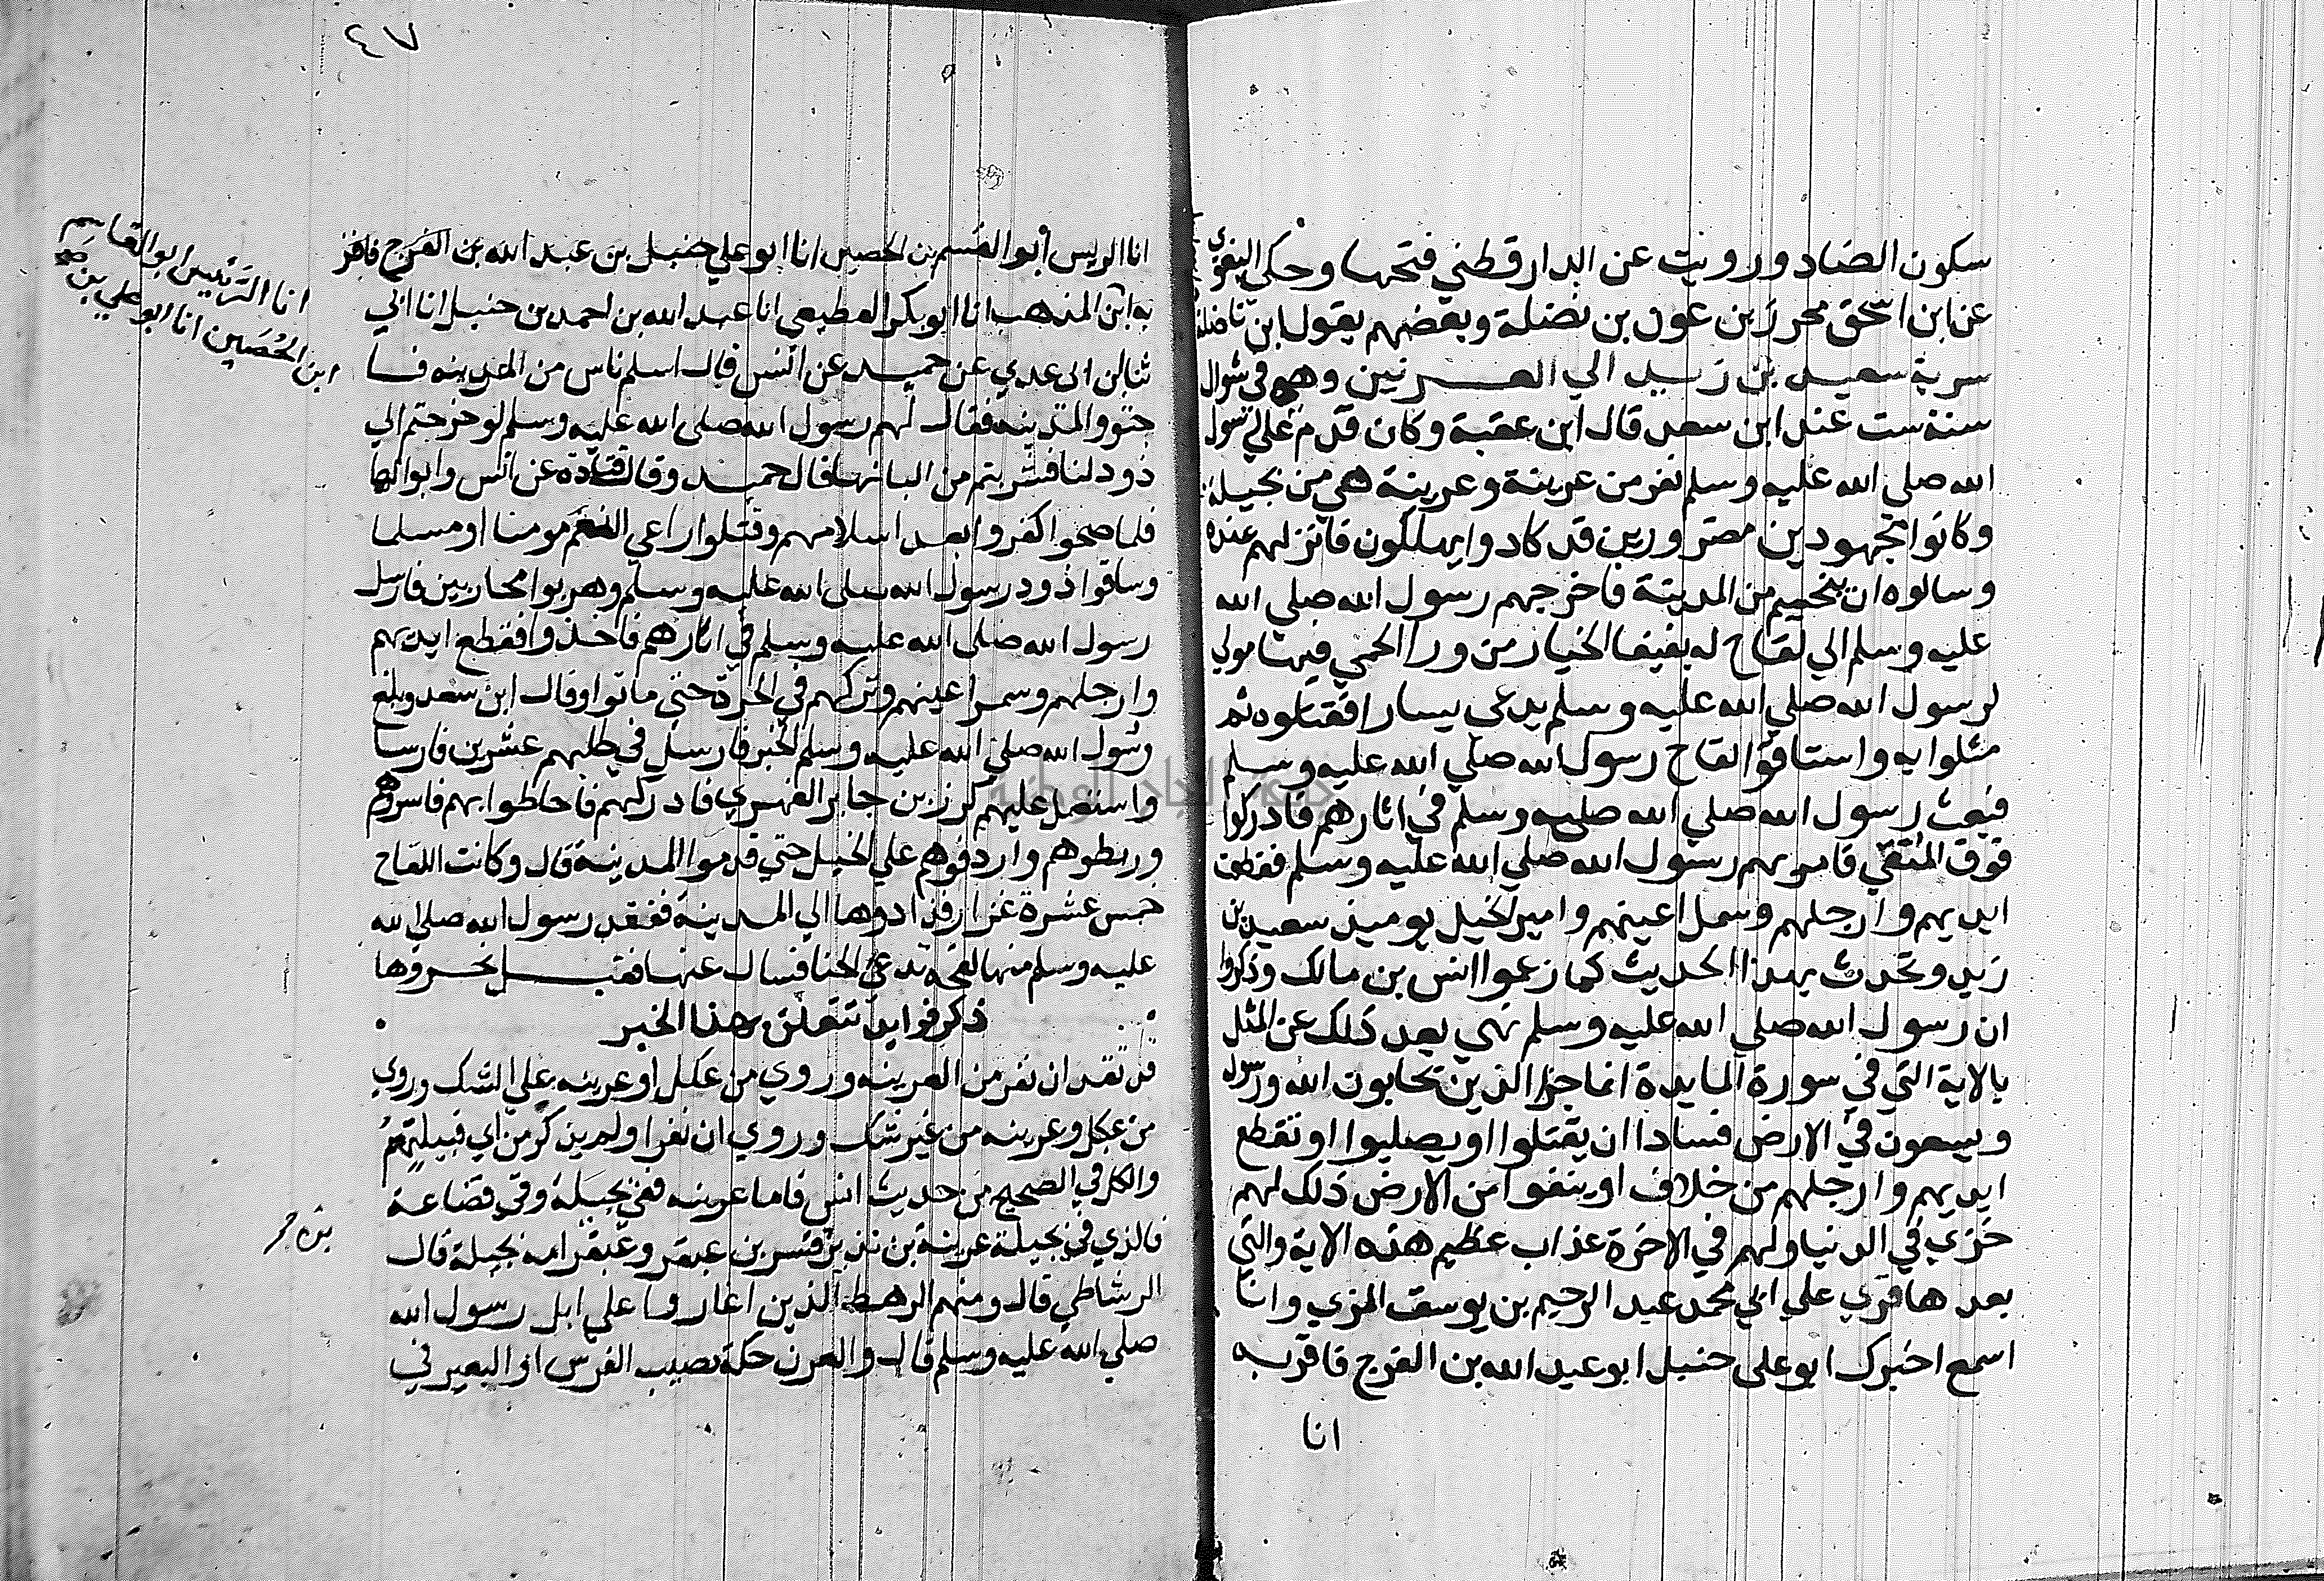 سكون الضاد ورويت عن الدارقطني فتحها وحكي البغوي
عن ابن اسحق محرز بن عون بن نضلة وبعضهم يقول ابن ناضلة
سرية سعيد بن زيد الي العرنيين وهي في شوال
سنة ست عند ابن سعد قال ابن عقبة وكان قدم علي رسول
الله صلي الله عليه وسلم نفر من عرينة وعرينة هي من بجيلة
وكانوا مجهودين مضرورين قد كادوا يهلكون فانزلهم عنده
وسالوه ان ينحيهم من المدينة فاخرجهم رسول الله صلي الله
عليه وسلم الي لقاح له بفيفا الخبار من ورا الحمي فيها مولي
لرسول الله صلي الله عليه وسلم يدعي يسارا فقتلوه ثم
مثلوا به واستاقوا لقاح رسول الله صلي الله عليه وسلم
فبعث رسول الله صلي الله عليه وسلم في اثارهم فادركوا
فوق المنقي فامر بهم رسول الله صلي الله عليه وسلم فقطعت
ايديهم وارجلهم وسمل اعينهم وامير الخيل يوميذ سعيد بن
زيد وتحدث بهذا الحديث كما زعموا انس بن مالك وذكروا
ان رسول الله صلي الله عليه وسلم نهي بعد ذلك عن المثل
بالاية التي في سورة المايدة انما جزا الذين يحاربون الله ورسوله
ويسعون في الارض فسادا ان يقتلوا او يصلبوا او تقطع
ايديهم وارجلهم من خلاف او ينفوا من الارض ذلك لهم
خزي في الدنيا ولهم في الاخرة عذاب عظيم هذه الاية والتي
بعدها قري علي ابي محمد عبد الرحيم بن يوسف المزي وانا
اسمع اخبرك ابو علي حنبل ابو عبد الله بن الفرج فاقر به
انا
٤٧
انا الريس ابو القسم بن الحصين انا ابو علي حنبل بن عبد الله بن الفرج فاقر
به ابن المذهب انا ابو بكر القطيعي انا عبد الله بن احمد بن حنبل انا ابي
ثنا ابن ابي عدي عن حميد عن انس قال اسلم ناس من العرينه فا
جتووا المدينه فقال لهم رسول الله صلى الله عليه وسلم لو خرجتم الي
ذود لنا فشربتم من البانها قال حميد وقال قتادة عن انس وابوالها
فلما صحوا كفروا بعد اسلامهم وقتلوا راعي النعم مومنا او مسلما
وساقوا ذود رسول الله صلى الله عليه وسلم وهربوا محاربين فارسل
رسول الله صلى الله عليه وسلم في اثارهم فاخذوا فقطع ايديهم
وارجلهم وسمر اعينهم وتركهم في الحرة حتي ماتوا وقال ابن سعد وبلغ
رسول الله صلى الله عليه وسلم الخبر فارسل في طلبهم عشرين فارسا
واستعمل عليهم كرز بن جابر الفهري فادركهم فاحاطوا بهم فاسروهم
وربطوهم واردفوهم علي الخيل حتي قدموا المدينة قال وكانت اللقاح
خمس عشرة غزارا فردوها الي المدينة ففقد رسول الله صلي الله
عليه وسلم منها لقحه تدعي الحنا فسال عنها فقيل نحروها
ذكر فوايد تتعلق بهذا الخبر
قد تقدم ان نفر من العرينه وروي من عكل او عرينه علي الشك وروي
من عكل وعرينه من غير شك وروي ان نفرا ولم يذكر من اي قبيلتهم
والكل في الصحيح من حديث انس فاما عرينه ففي بجيلة وفي قضاعة
فالذي في بجيلة عرينة بن نذير بن قسر بن عبقر وعبقر امه بجيلة قال
الرشاطي قال ومنهم الرهط الذين اغاروا علي ابل رسول الله
صلي الله عليه وسلم قال والعرن حكة تصيب الفرس او البعير في
انا الرئيس ابو القاسم
ابن الحصين انا ابو علي بن